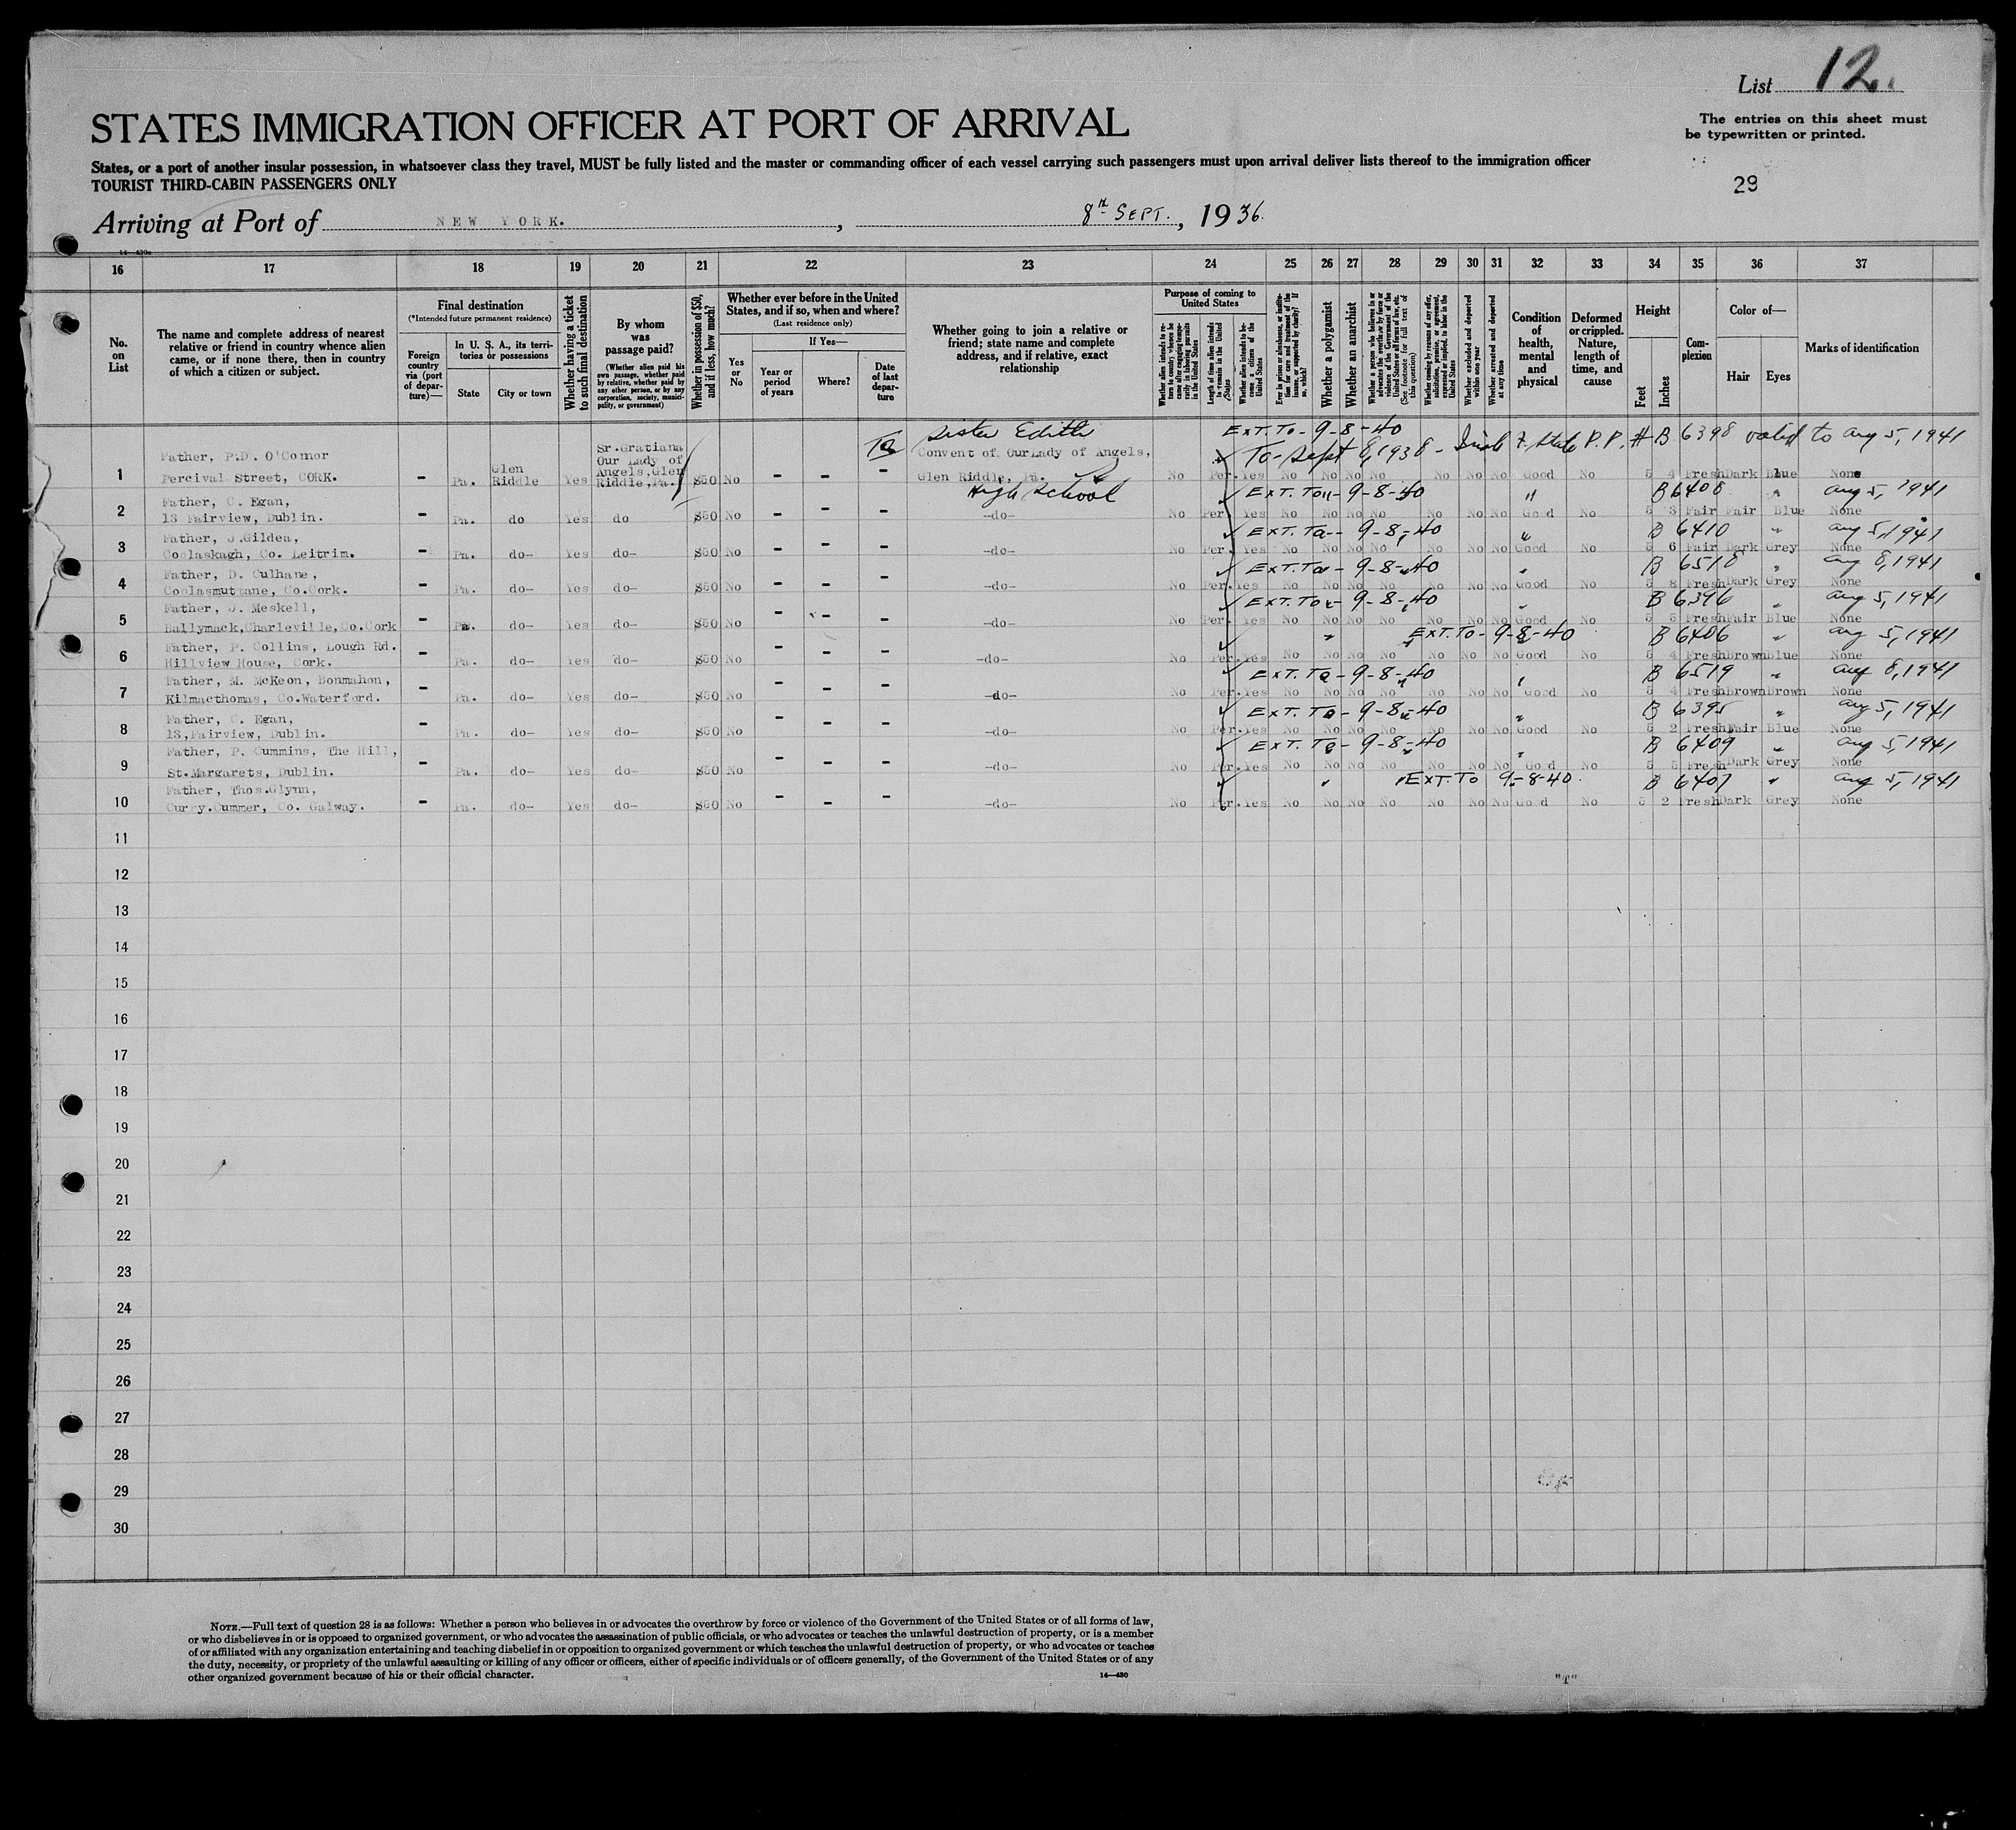 List 12.
STATES IMMIGRATION OFFICER AT PORT OF ARRIVAL
The entries on this sheet must
be typewritten or printed.
States, or a port of another insular possession, in whatsoever class they travel, MUST be fully listed and the master or commanding officer of each vessel carrying such passengers must upon arrival deliver lists thereof to the immigration officer
TOURIST THIRD-CABIN PASSENGERS ONLY
29
Arriving at Port of NEW YORK. , 8th SEPT., 1936.
16 17 18 19 20 21 22 23 24 25 26 27 28 29 30 31 32 33 34 35 36 37
No. on List
The name and complete address of nearest relative or friend in country whence alien came, or if none there, then in country of which a citizen or subject.
Final destination
(*Intended future permanent residence)
Foreign country via (port of departure)—
In U. S. A., its territories or possessions
State
City or town
Whether having a ticket to such final destination
By whom was passage paid?
(Whether alien paid his own passage, whether paid by relative, whether paid by any other person, or by any corporation, society, municipality, or government)
Whether in possession of $50, and if less, how much?
Whether ever before in the United States, and if so, when and where?
(Last residence only)
Yes or No
If Yes—
Year or period of years
Where?
Date of last departure
Whether going to join a relative or friend; state name and complete address, and if relative, exact relationship
Purpose of coming to United States
Whether alien intends to return to country whence he came after engaging temporarily in laboring pursuits in the United States
Length of time alien intends to remain in the United States
Whether alien intends to become a citizen of the United States
Ever in prison or almshouse, or institution for care and treatment of the insane, or supported by charity? If so, which?
Whether a polygamist
Whether an anarchist
Whether a person who believes in or advocates the overthrow by force or violence of the Government of the United States or all forms of law, etc. (See footnote for full text of this question)
Whether coming by reason of any offer, solicitation, promise, or agreement, expressed or implied, to labor in the United States
Whether excluded and deported within one year
Whether arrested and deported at any time
Condition of health, mental and physical
Deformed or crippled. Nature, length of time, and cause
Height
Feet
Inches
Complexion
Color of—
Hair
Eyes
Marks of identification
Sister Edith EXT. TO- 9-8-40
To Sept 8, 1938 - Irish F. State P.P. # B 6398 valid to Aug 5, 1941
1 Father, P.D. O'Connor
Percival Street, CORK. - Pa. Glen Riddle Yes Sr.Gratiana Our Lady of Angels,Glen Riddle,Pa. $50 No - - - Convent of OurLady of Angels, Glen Riddle, Pa. No Per. Yes No No No No No No No Good No 5 4 Fresh Dark Blue None
High School EXT. TO - 9-8-40 " B 6408 " Aug 5, 1941
2 Father, C. Egan,
13 Fairview, Dublin. - Pa. do Yes do $50 No - - - -do- No Per. Yes No No No No No No No Good No 5 3 Fair Fair Blue None
EXT. TO - 9-8-40 " B 6410 " Aug 5, 1941
3 Father, J.Gildea,
Coolaskagh, Co. Leitrim. - Pa. do- Yes do- $50 No - - - -do- No Per. Yes No No No No No No No Good No 5 6 Fair Dark Grey None
EXT. TO - 9-8-40 " B 6518 " Aug 8, 1941
4 Father, D. Culhane,
Coolasmuttane, Co.Cork. - Pa. do- Yes do- $50 No - - - -do- No Per. Yes No No No No No No No Good No 5 8 Fresh Dark Grey None
EXT. TO - 9-8-40 " B 6396 " Aug 5, 1941
5 Father, J. Meskell,
Ballymack,Charleville,Co.Cork - Pa. do- Yes do- $50 No - - - -do- No Per. Yes No No No No No No No Good No 5 5 Fresh Fair Blue None
" EXT. TO - 9-8-40 B 6406 " Aug 5, 1941
6 Father, P. Collins, Lough Rd.
Hillview House, Cork. - Pa. do- Yes do- $50 No - - - -do- No Per. Yes No No No No No No No Good No 5 4 Fresh Brown Blue None
EXT. TO - 9-8-40 " B 6519 " Aug 8, 1941
7 Father, M. McKeon, Bonmahon,
Kilmacthomas, Co.Waterford. - Pa. do- Yes do- $50 No - - - -do- No Per. Yes No No No No No No No Good No 5 4 Fresh Brown Brown None
EXT. TO - 9-8-40 " B 6395 " Aug 5, 1941
8 Father, C. Egan,
13,Fairview, Dublin. - Pa. do- Yes do- $50 No - - - -do- No Per. Yes No No No No No No No Good No 5 2 Fresh Fair Blue None
EXT. TO - 9-8-40 " B 6409 " Aug 5, 1941
9 Father, P. Cummins, The Hill,
St.Margarets, Dublin. - Pa. do- Yes do- $50 No - - - -do- No Per. Yes No No No No No No No Good No 5 5 Fresh Dark Grey None
" EXT. TO 9-8-40. B 6407 " Aug 5, 1941
10 Father, Thos.Glynn,
Curry.Cummer, Co. Galway. - Pa. do- Yes do- $50 No - - - -do- No Per. Yes No No No No No No No Good No 5 2 Fresh Dark Grey None
11
12
13
14
15
16
17
18
19
20
21
22
23
24
25
26
27
28
29
30
NOTE.—Full text of question 28 is as follows: Whether a person who believes in or advocates the overthrow by force or violence of the Government of the United States or of all forms of law,
or who disbelieves in or is opposed to organized government, or who advocates the assassination of public officials, or who advocates or teaches the unlawful destruction of property, or is a member
of or affiliated with any organization entertaining and teaching disbelief in or opposition to organized government or which teaches the unlawful destruction of property, or who advocates or teaches
the duty, necessity, or propriety of the unlawful assaulting or killing of any officer or officers, either of specific individuals or of officers generally, of the Government of the United States or of any
other organized government because of his or their official character.
14—430
"T"